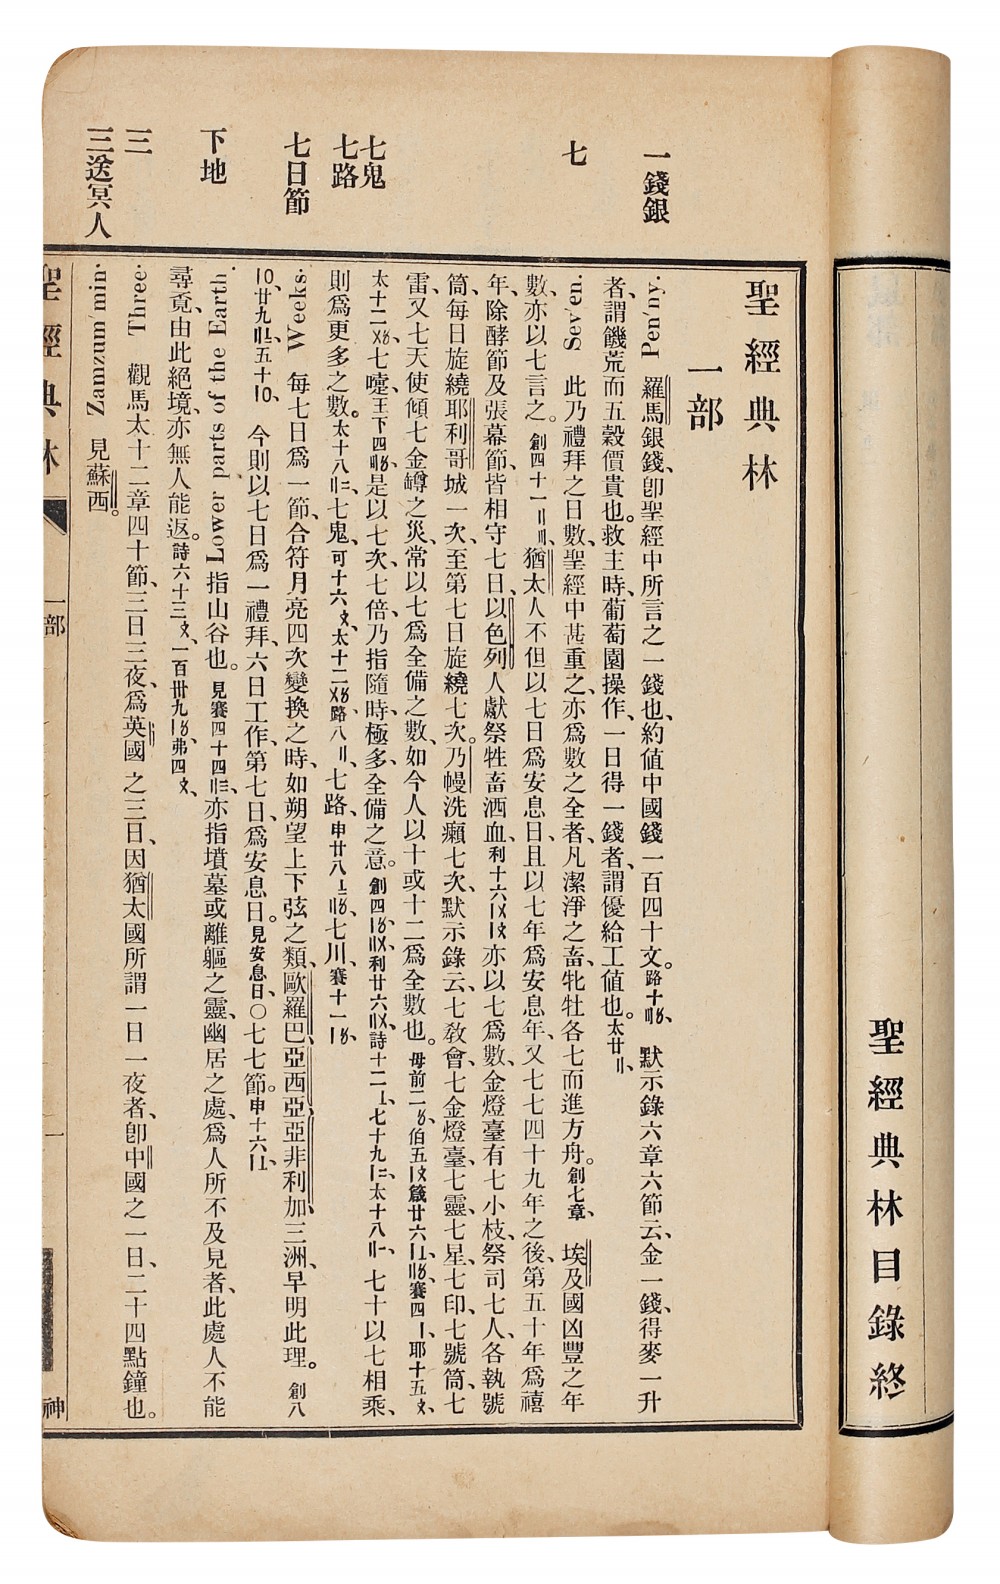 聖經典林目錄終
聖經典林
一部
一錢銀
Pen′ny. 羅馬銀錢、卽聖經中所言之一錢也、約值中國錢一百四十文。路十〥、 默示錄六章六節云、金一錢、得麥一升
者、謂饑荒而五穀價貴也。救主時、葡萄園操作、一日得一錢者、謂優給工値也。太廿〢、
七
Sev′en. 此乃禮拜之日數、聖經中甚重之、亦爲數之全者、凡潔淨之畜、牝牡各七而進方舟。創七章、 埃及國凶豐之年
數、亦以七言之。創四十一〢〣、 猶太人不但以七日爲安息日、且以七年爲安息年、又七七四十九年之後、第五十年爲禧
年、除酵節及張幕節、皆相守七日、以色列人獻祭牲畜洒血、利十六 亦以七爲數、金燈臺有七小枝、祭司七人、各執號
筒、每日旋繞耶利哥城一次、至第七日旋繞七次。乃幔洗癩七次、默示錄云、七敎會、七金燈臺、七靈、七星、七印、七號筒、七
雷、又七天使傾七金罇之災、常以七爲全備之數、如今人以十或十二爲全數也。母前二 伯五 箴廿六 賽四 耶十五
太十二 七嚏、王下四 是以七次、七倍、乃指隨時極多全備之意。創四 利廿六 詩十二 七十九 太十八 七十以七相乘、
則爲更多之數。太十八
七鬼
七鬼、可十六 太十二 路八
七路
七路、申廿八 七川、賽十一
七日節
Weeks. 每七日爲一節、合符月亮四次變換之時、如朔望上下弦之類、歐羅巴、亞西亞、亞非利加三洲、早明此理。創八
廿九 五十 今則以七日爲一禮拜、六日工作、第七日爲安息日。見安息日、〇七七節。申十六
下地
Lower parts of the Earth. 指山谷也。見賽四十四 亦指墳墓或離軀之靈、幽居之處、爲人所不及見者、此處人不能
尋覔、由此絕境、亦無人能返。詩六十三 一百卅九 弗四
三
Three. 觀馬太十二章四十節、三日三夜、爲英國之三日、因猶太國所謂一日一夜者、卽中國之一日、二十四點鐘也。
三送冥人
Zamzum′mim. 見蘇西。
聖經典林
一部
一
神